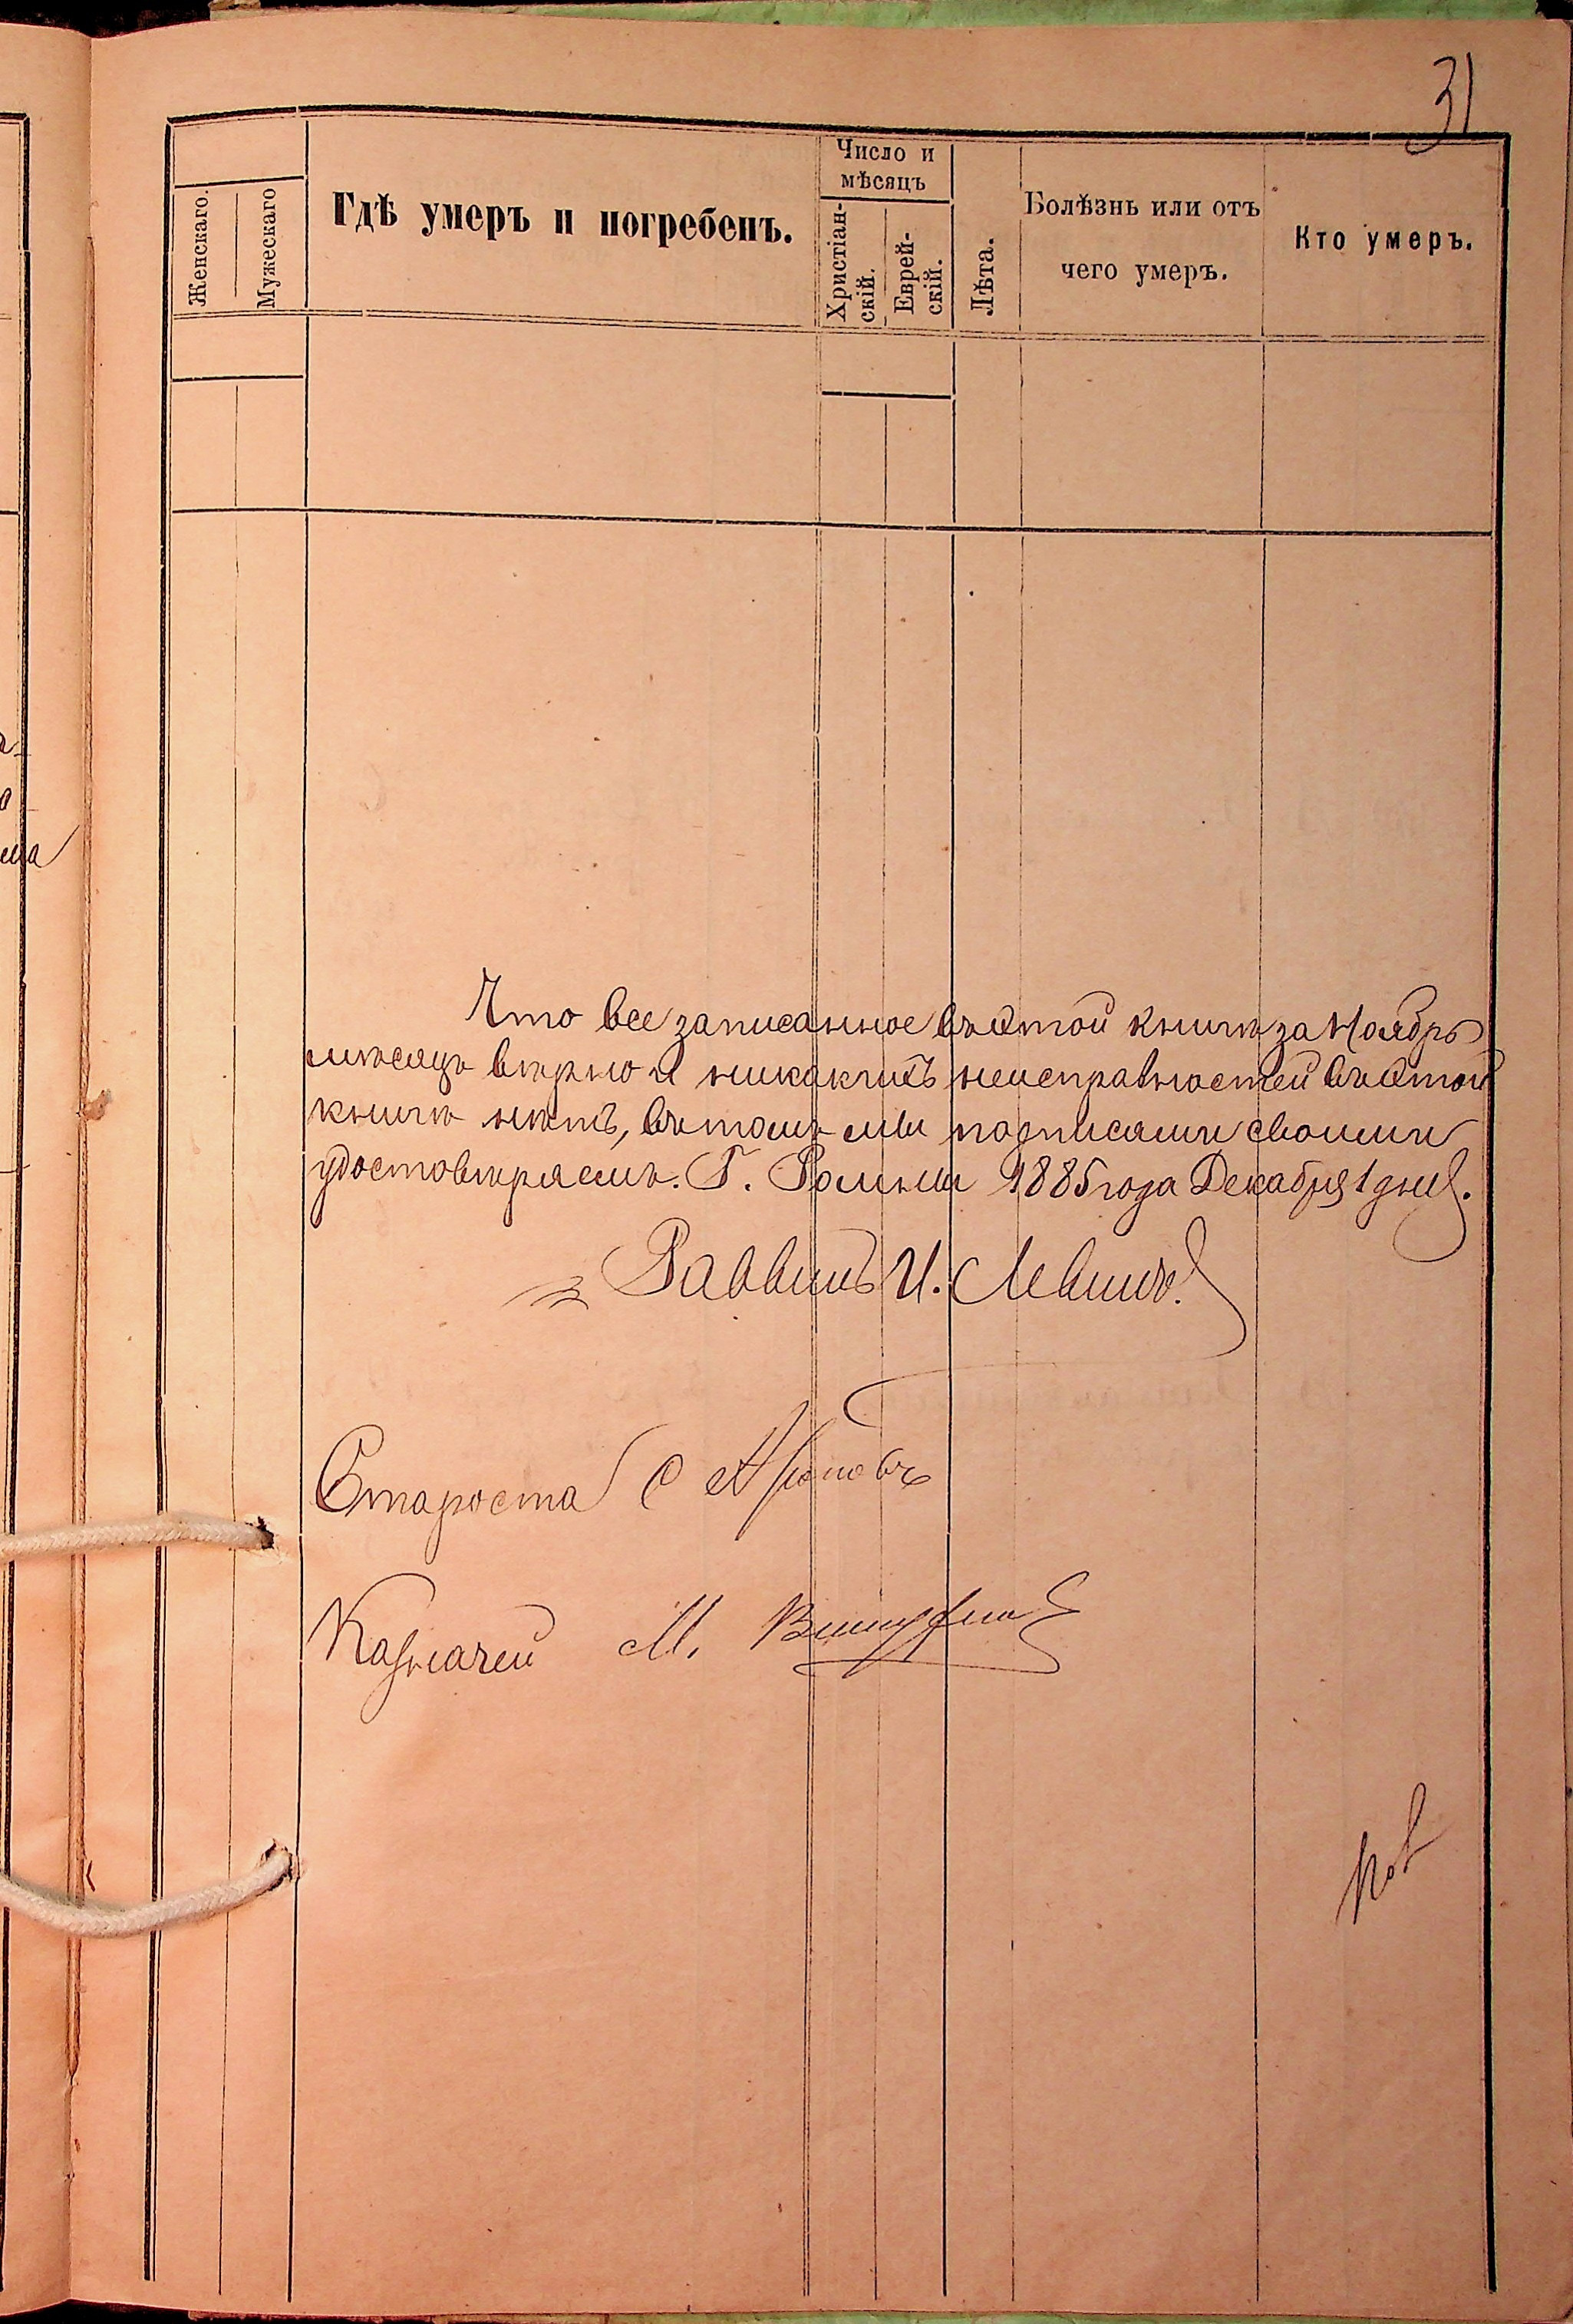 31
Женскаго.
Мужескаго
Гдѣ умеръ и погребенъ.
Число и
мѣсяцъ
Христіан-
скій.
Еврей-
скій.
Лѣта.
Болѣзнь или отъ
чего умеръ.
Кто умеръ.
Что все записанное въ этой книгѣ за Ноябрь
мѣсяцъ вѣрно и никакихъ неисправностей въ этой
книгѣ нѣтъ, въ томъ мы подписями своими
удостовѣряемъ. Г. Ромны 1885 года Декабря 1 дня.
Раввинъ И. Левинъ.
Староста С
Казначей М.